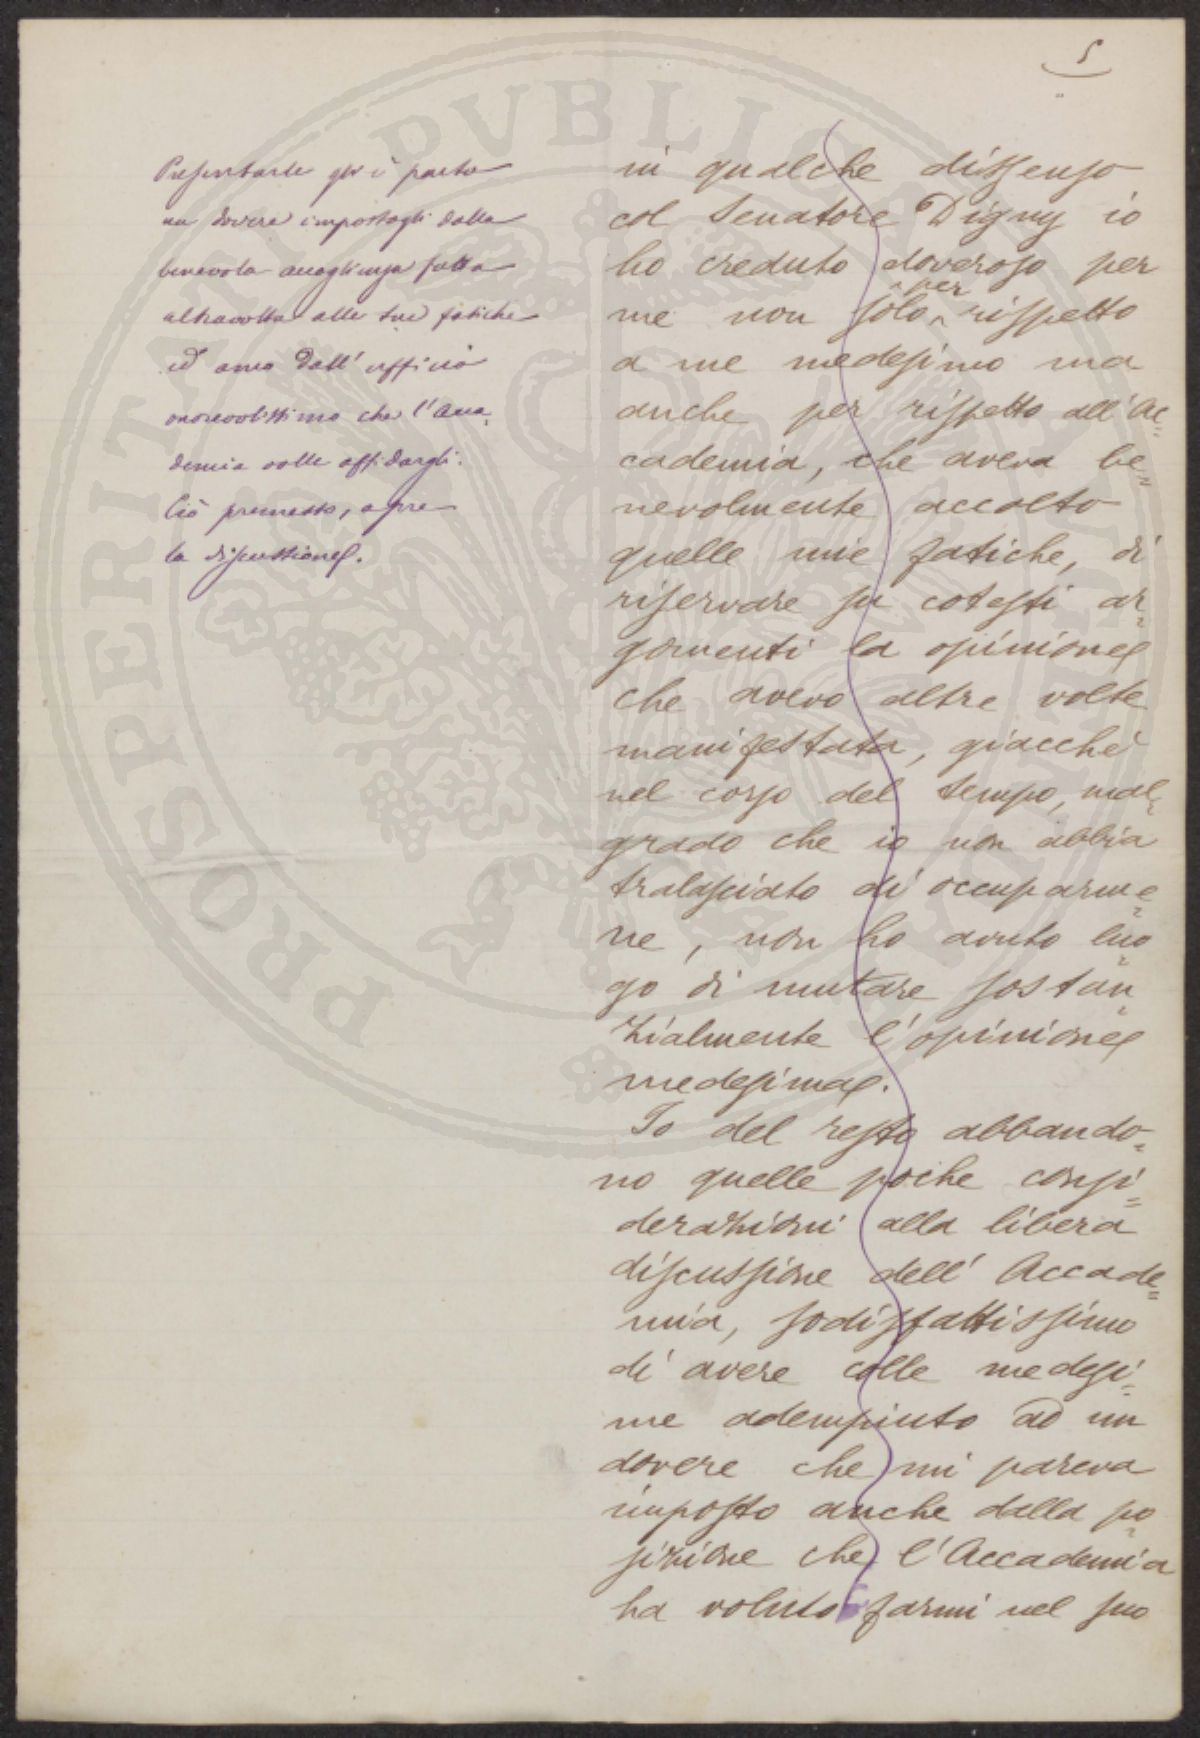 5
Presentarle gli è parso
un dovere impostogli dalla
benevola accoglienza fatta
altravolta alle sue fatiche
ed anco dall' ufficio
onorevolissimo che l'Acca=
demia volle affidargli.
Ciò premesso, apre
la discussione.
in qualche dissenso
col Senatore Digny io
ho creduto doveroso per
me non solo per rispetto
a me medesimo ma
anche per rispetto all' Ac=
cademia, che aveva be=
nevolmente accolto
quelle mie fatiche, di
riservare su cotesti ar=
gomenti la opinione
che avevo altre volte
manifestata, giacchè
nel corso del tempo, mal=
grado che io non abbia
tralasciato di occuparme=
ne, non ho avuto luo=
go di mutare sostan=
zialmente l'opinione
medesima.
Io del resto abbando=
no quelle poche consi=
derazioni alla libera
discussione dell' Accade=
mia, sodisfattissimo
di avere colle medesi=
me adempiuto ad un
dovere che mi pareva
imposto anche dalla po=
sizione che l'Accademia
ha voluto farmi nel suo
PROSPERITATI PVBLICAE